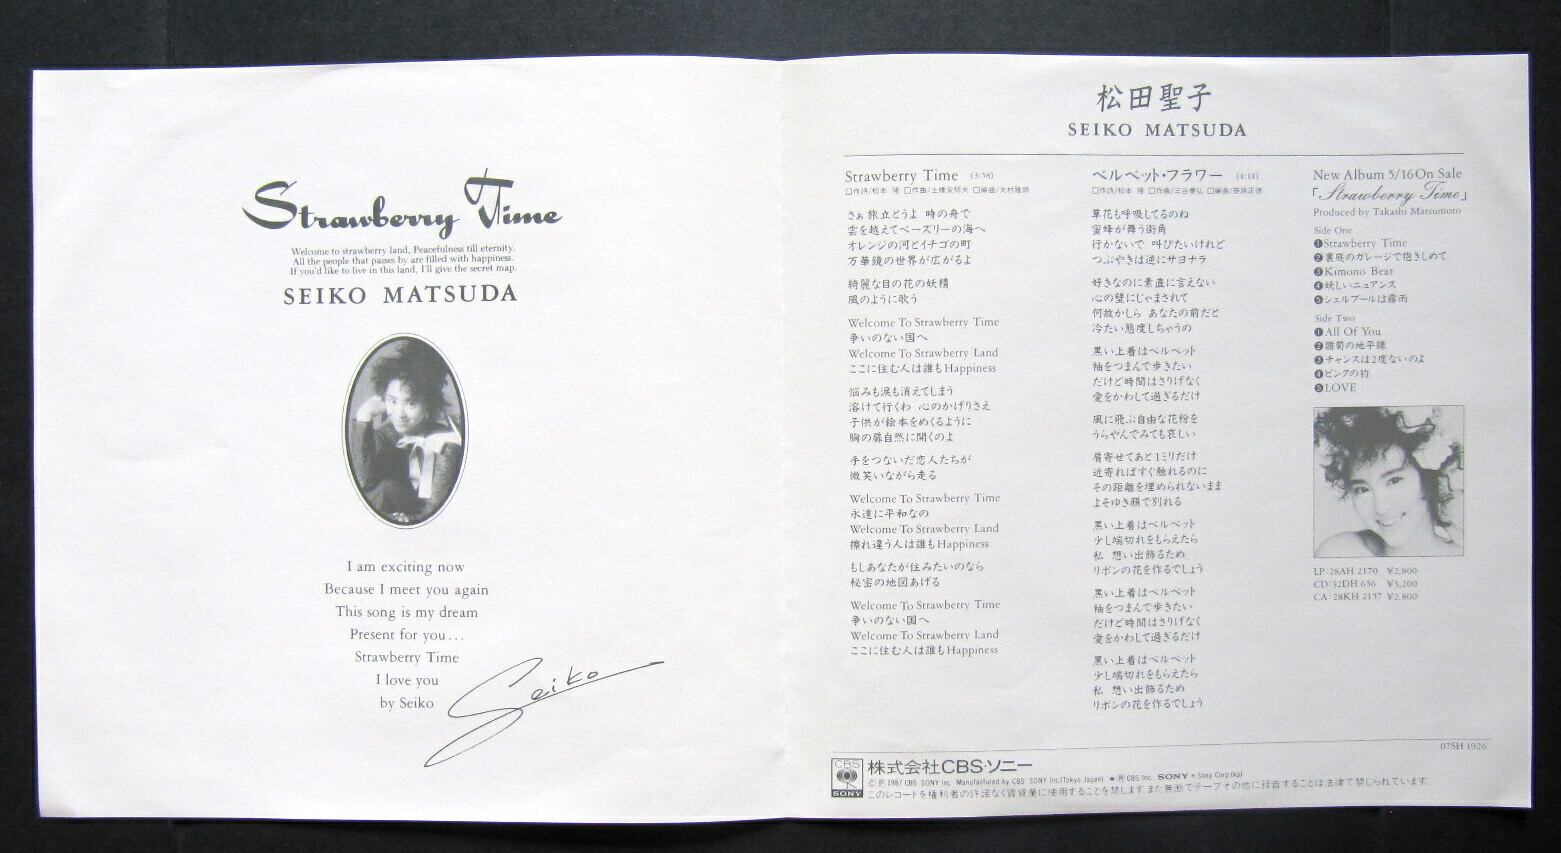 Strawberry Time
Welcome to strawberry land, Peacefulness till eternity.
All the people that passes by are filled with happiness.
If you'd like to live in this land, I'll give the secret map.
SEIKO MATSUDA
I am exciting now
Because I meet you again
This song is my dream
Present for you...
Strawberry Time
I love you
by Seiko
Seiko
松田聖子
SEIKO MATSUDA
Strawberry Time (3:58)
□作詩/松本 隆 □作曲/土橋安騎夫 □編曲/大村雅朗
さぁ 旅立とうよ 時の舟で
雲を越えてペーズリーの海へ
オレンジの河とイチゴの町
万華鏡の世界が広がるよ
綺麗な目の花の妖精
風のように歌う
Welcome To Strawberry Time
争いのない国へ
Welcome To Strawberry Land
ここに住む人は誰もHappiness
悩みも涙も消えてしまう
溶けて行くわ 心のかげりさえ
子供が絵本をめくるように
胸の扉自然に開くのよ
手をつないだ恋人たちが
微笑いながら走る
Welcome To Strawberry Time
永遠に平和なの
Welcome To Strawberry Land
擦れ違う人は誰もHappiness
もしあなたが住みたいのなら
秘密の地図あげる
Welcome To Strawberry Time
争いのない国へ
Welcome To Strawberry Land
ここに住む人は誰もHappiness
ベルベット・フラワー (4:14)
□作詩/松本 隆 □作曲/三谷泰弘 □編曲/笹路正徳
草花も呼吸してるのね
蜜蜂が舞う街角
行かないで 叫びたいけれど
つぶやきは逆にサヨナラ
好きなのに素直に言えない
心の壁にじゃまされて
何故かしら あなたの前だと
冷たい態度しちゃうの
黒い上着はベルベット
袖をつまんで歩きたい
だけど時間はさりげなく
愛をかわして過ぎるだけ
風に飛ぶ自由な花粉を
うらやんでみても哀しい
肩寄せてあと1ミリだけ
近寄ればすぐ触れるのに
その距離を埋められないまま
よそゆき顔で別れる
黒い上着はベルベット
少し端切れをもらえたら
私 想い出飾るため
リボンの花を作るでしょう
黒い上着はベルベット
袖をつまんで歩きたい
だけど時間はさりげなく
愛をかわして過ぎるだけ
黒い上着はベルベット
少し端切れをもらえたら
私 想い出飾るため
リボンの花を作るでしょう
New Album 5/16 On Sale
「Strawberry Time」
Produced by Takashi Matsumoto
Side One
❶Strawberry Time
❷裏庭のガレージで抱きしめて
❸Kimono Beat
❹妖しいニュアンス
❺シェルブールは霧雨
Side Two
❶All Of You
❷雛菊の地平線
❸チャンスは2度ないのよ
❹ピンクの豹
❺LOVE
LP:28AH 2170 ¥2,800
CD:32DH 656 ¥3,200
CA:28KH 2157 ¥2,800
07SH 1926
CBS
SONY
株式会社CBS・ソニー
C・P 1987 CBS SONY Inc. Manufactured by CBS SONY Inc.(Tokyo Japan) ● ® CBS Inc. SONY ® Sony Corp.(kp)
このレコードを権利者の許諾なく賃貸業に使用することを禁します。また無断でテープその他に録音することは法律で禁じられています。